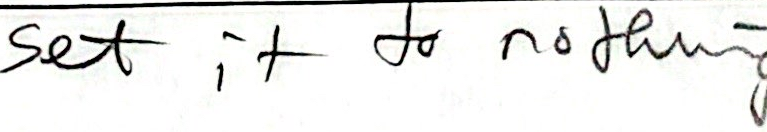 set it to nothing